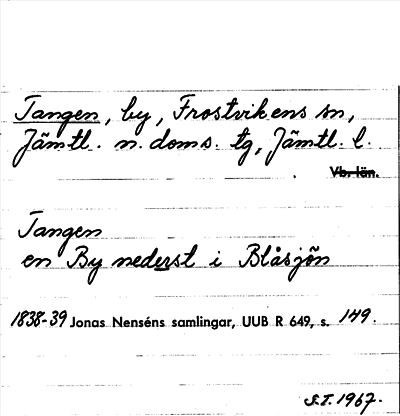 Tangen, by, Frostvikens sn,
Jämtl. n. doms. tg, Jämtl. l.
Vb. län.
Tangen
en By nederst i Blåsjön
1838-39 Jonas Nenséns samlingar, UUB R 649, s. 149.
S.T. 1967.